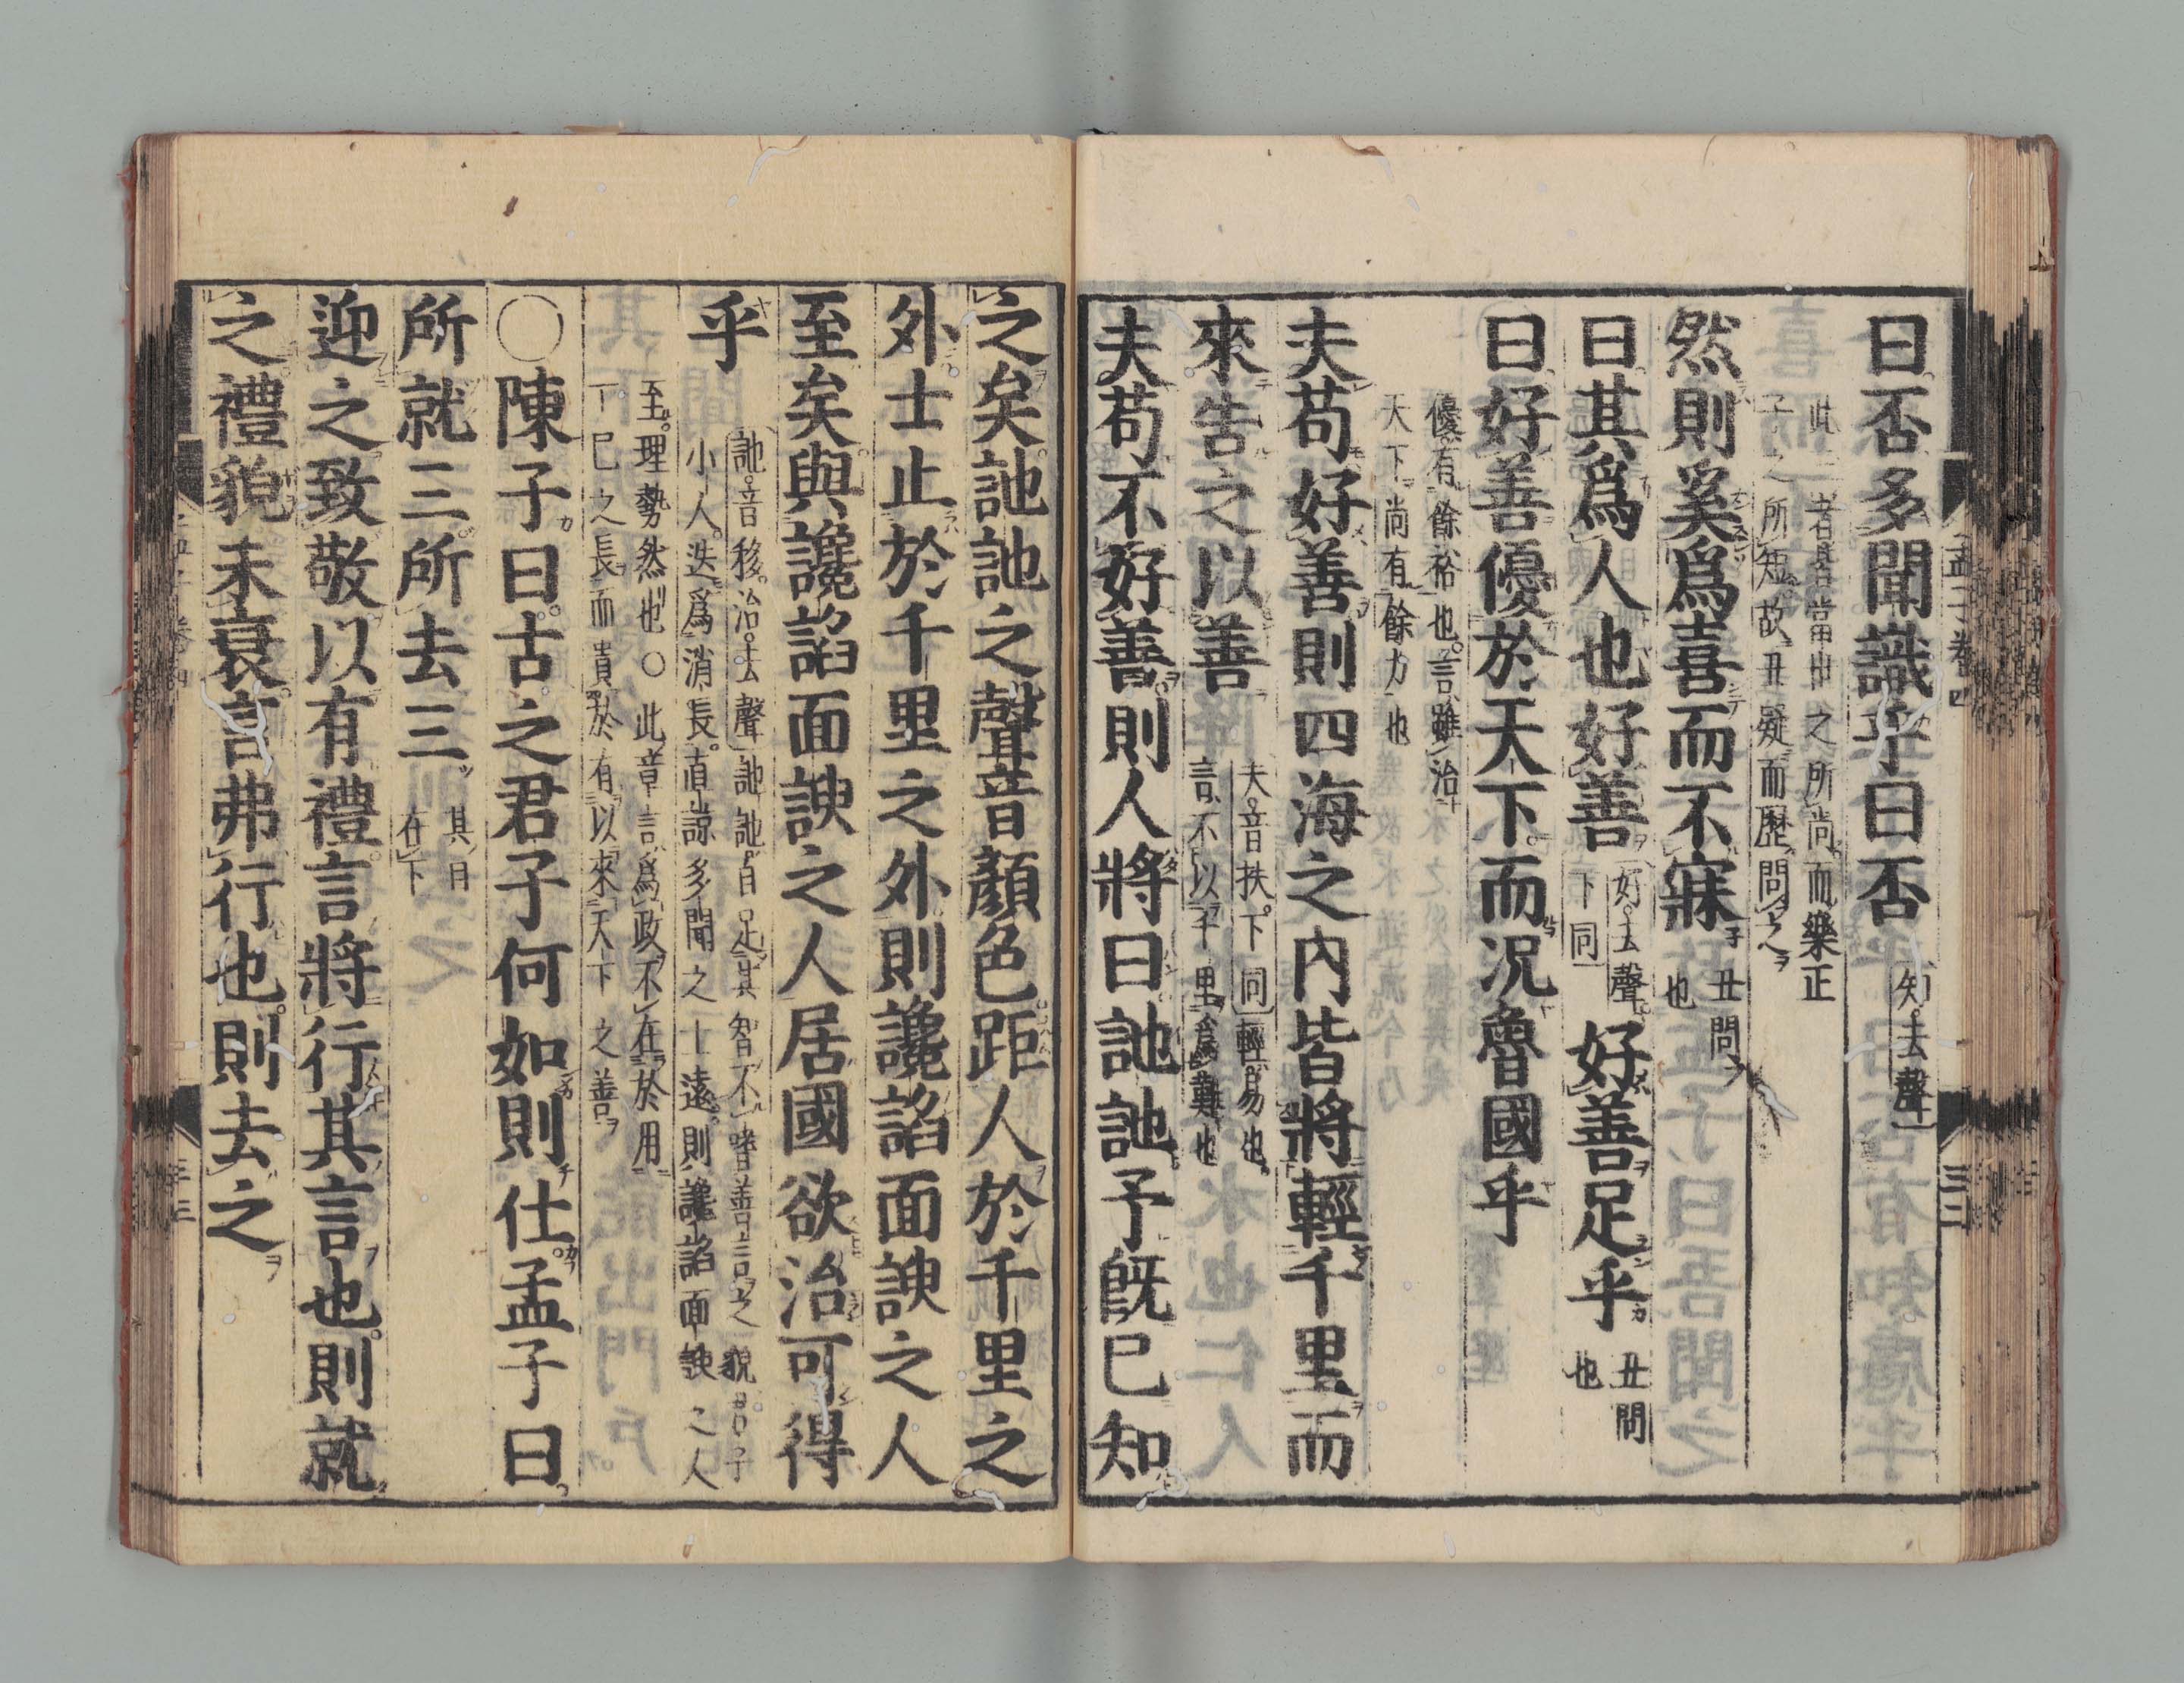 曰否多聞識乎曰否
知去聲
此三者皆當世之所尚而樂正
子之所短故丑疑而歷問之
然則奚爲喜而不寐
丑問
也
曰其爲人也好善
好去聲
下同
好善足乎
丑問
也
曰好善優於天下而況魯國乎
優有餘裕也言雖治
天下尚有餘力也
夫苟好善則四海之內皆將輕千里而
來告之以善
夫音扶下同輕易也
言不以千里爲難也
夫苟不好善則人將曰訑訑予旣已知
之矣訑訑之聲音顏色距人於千里之
外士止於千里之外則讒諂面諛之人
至矣與讒諂面諛之人居國欲治可得
乎
訑音移治去聲訑訑自足其智不嗜善言之貌君子
小人迭爲消長直諒多聞之士遠則讒諂面諛之人
至理勢然也○此章言爲政不在於用
一己之長而貴於有以來天下之善
○陳子曰古之君子何如則仕孟子曰
所就三所去三
其目
在下
迎之致敬以有禮言將行其言也則就
之禮貌未衰言弗行也則去之
孟子卷四
三三